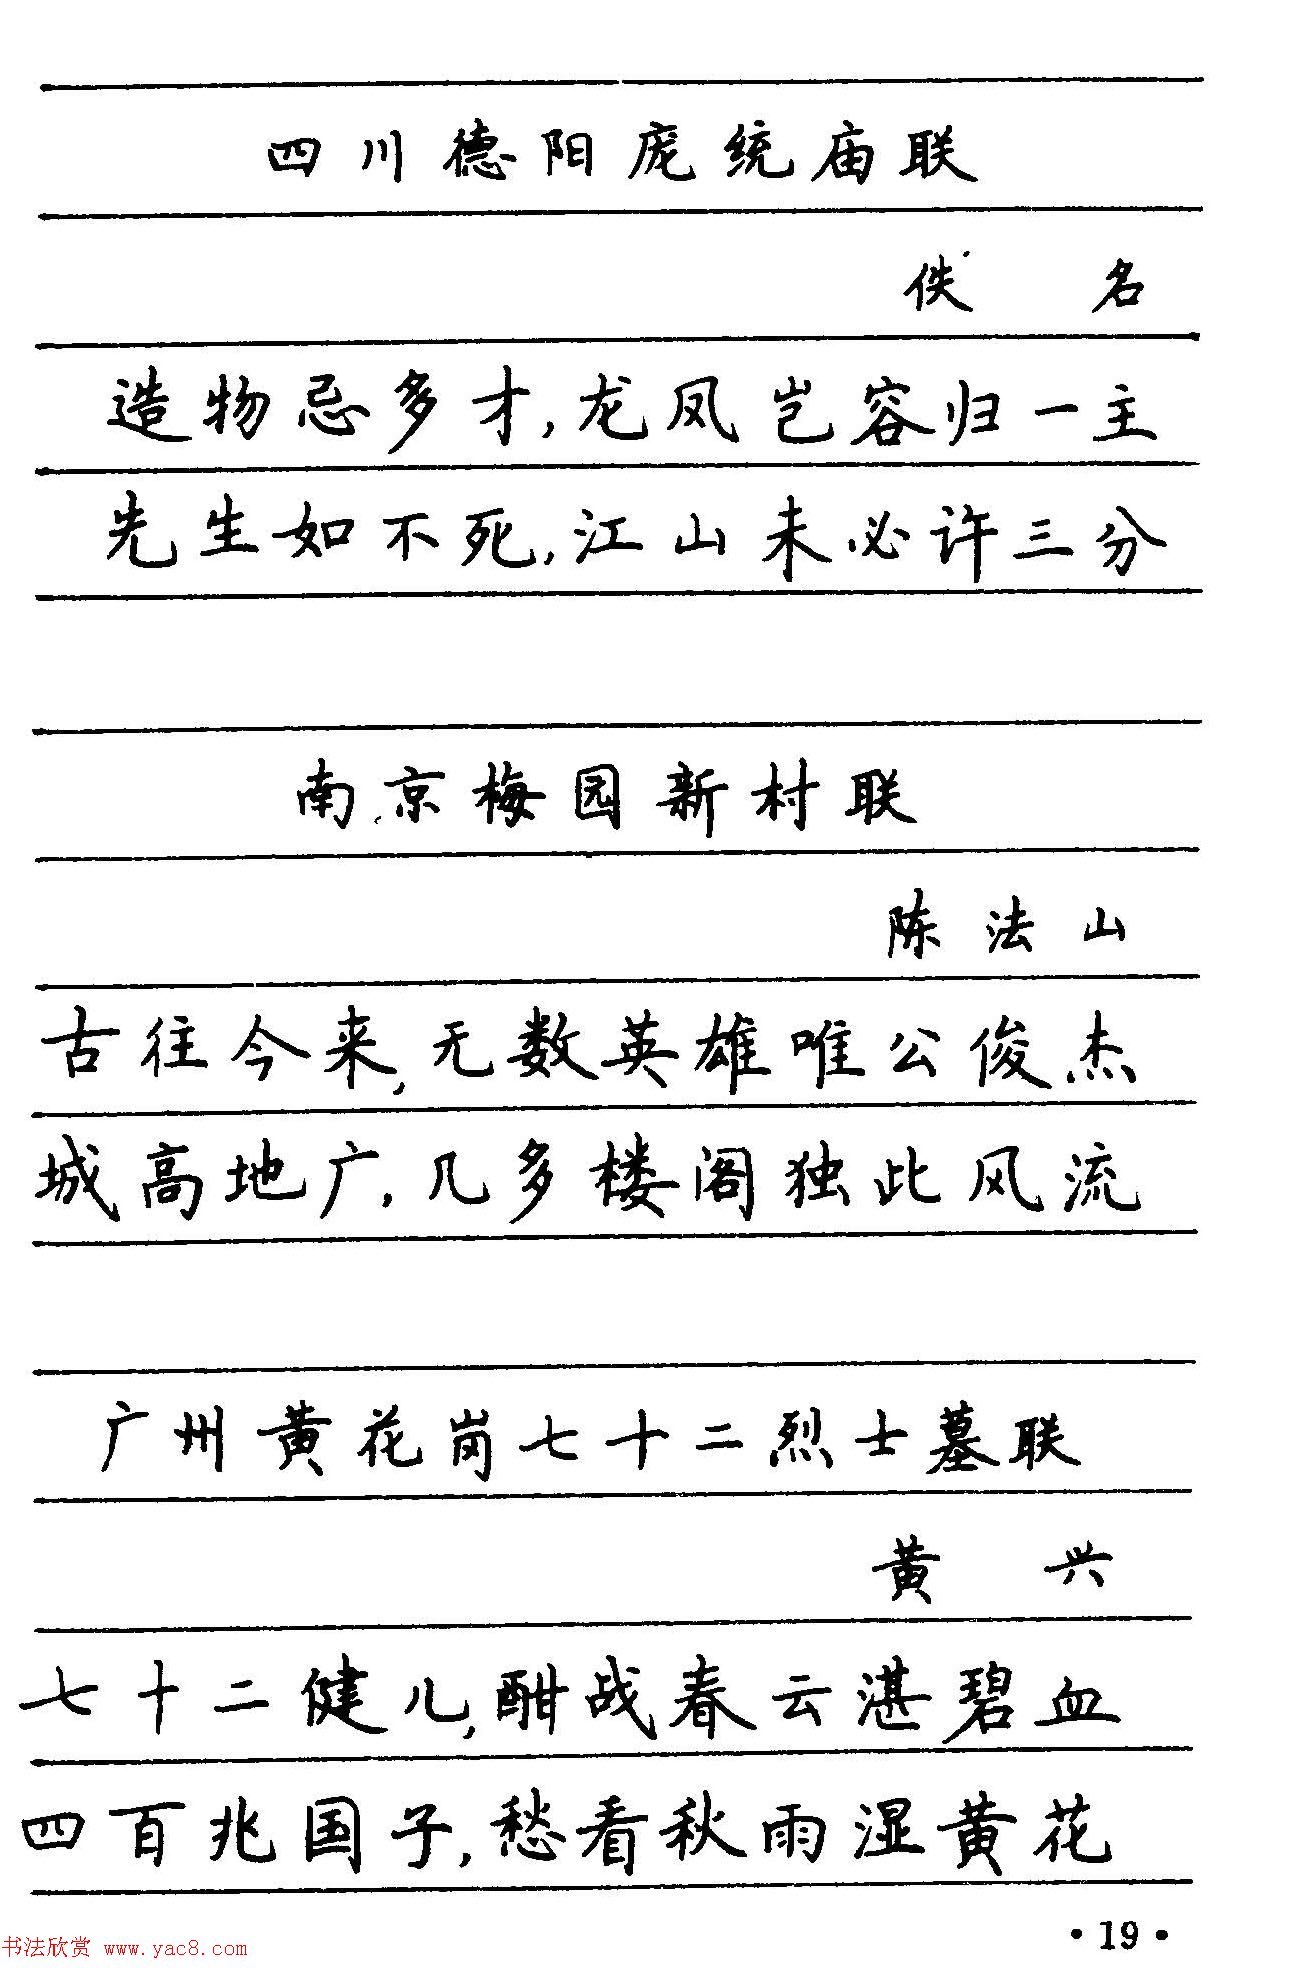 四川德阳庞统庙联
佚名
造物忌多才,龙凤岂容归一主
先生如不死,江山未必许三分
南京梅园新村联
陈法山
古往今来,无数英雄唯公俊杰
城高地广,几多楼阁独此风流
广州黄花岗七十二烈士墓联
黄兴
七十二健儿,酣战春云湛碧血
四百兆国子,愁看秋雨湿黄花
·19·
书法欣赏 www.yac8.com